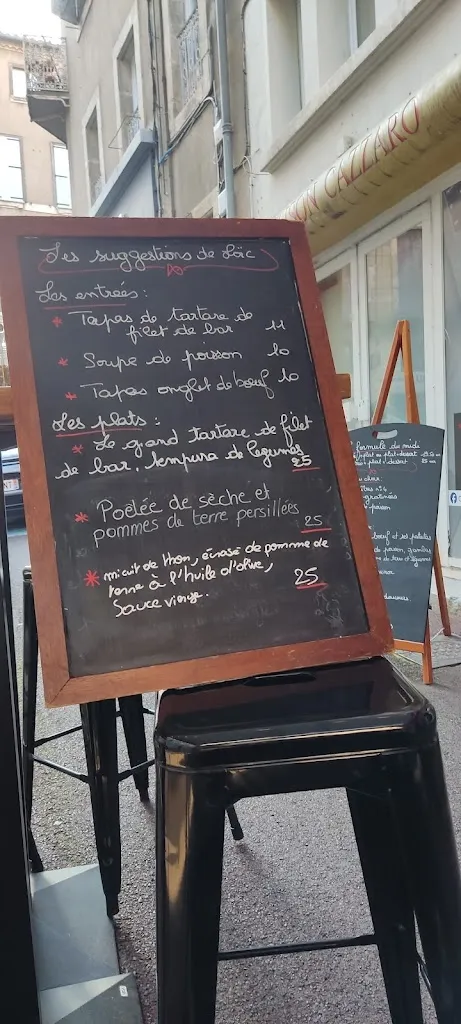 Les suggestions de Loïc
Les entrées :
* Tapas de tartare de
filet de bar 11
* Soupe de poisson 10
* Tapas onglet de boeuf 10
Les plats :
* Le grand tartare de filet
de bar, tempura de legumes
25
* Poêlée de sèche et
pommes de terre persillées 25
* micuit de thon, écrasé de pomme de
terre à l'huile d'olive, 25
Sauce vierge.
CAZZARO
formule du midi